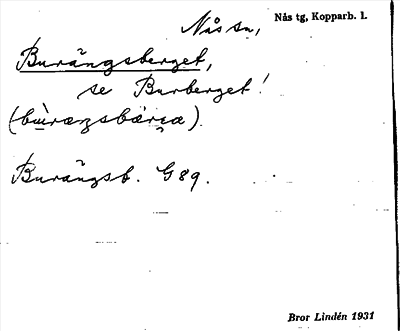 Nås sn,
Nås tg, Kopparb. l.
Burängsberget,
se Burberget!
Burängsb. G89.
Bror Lindén 1931